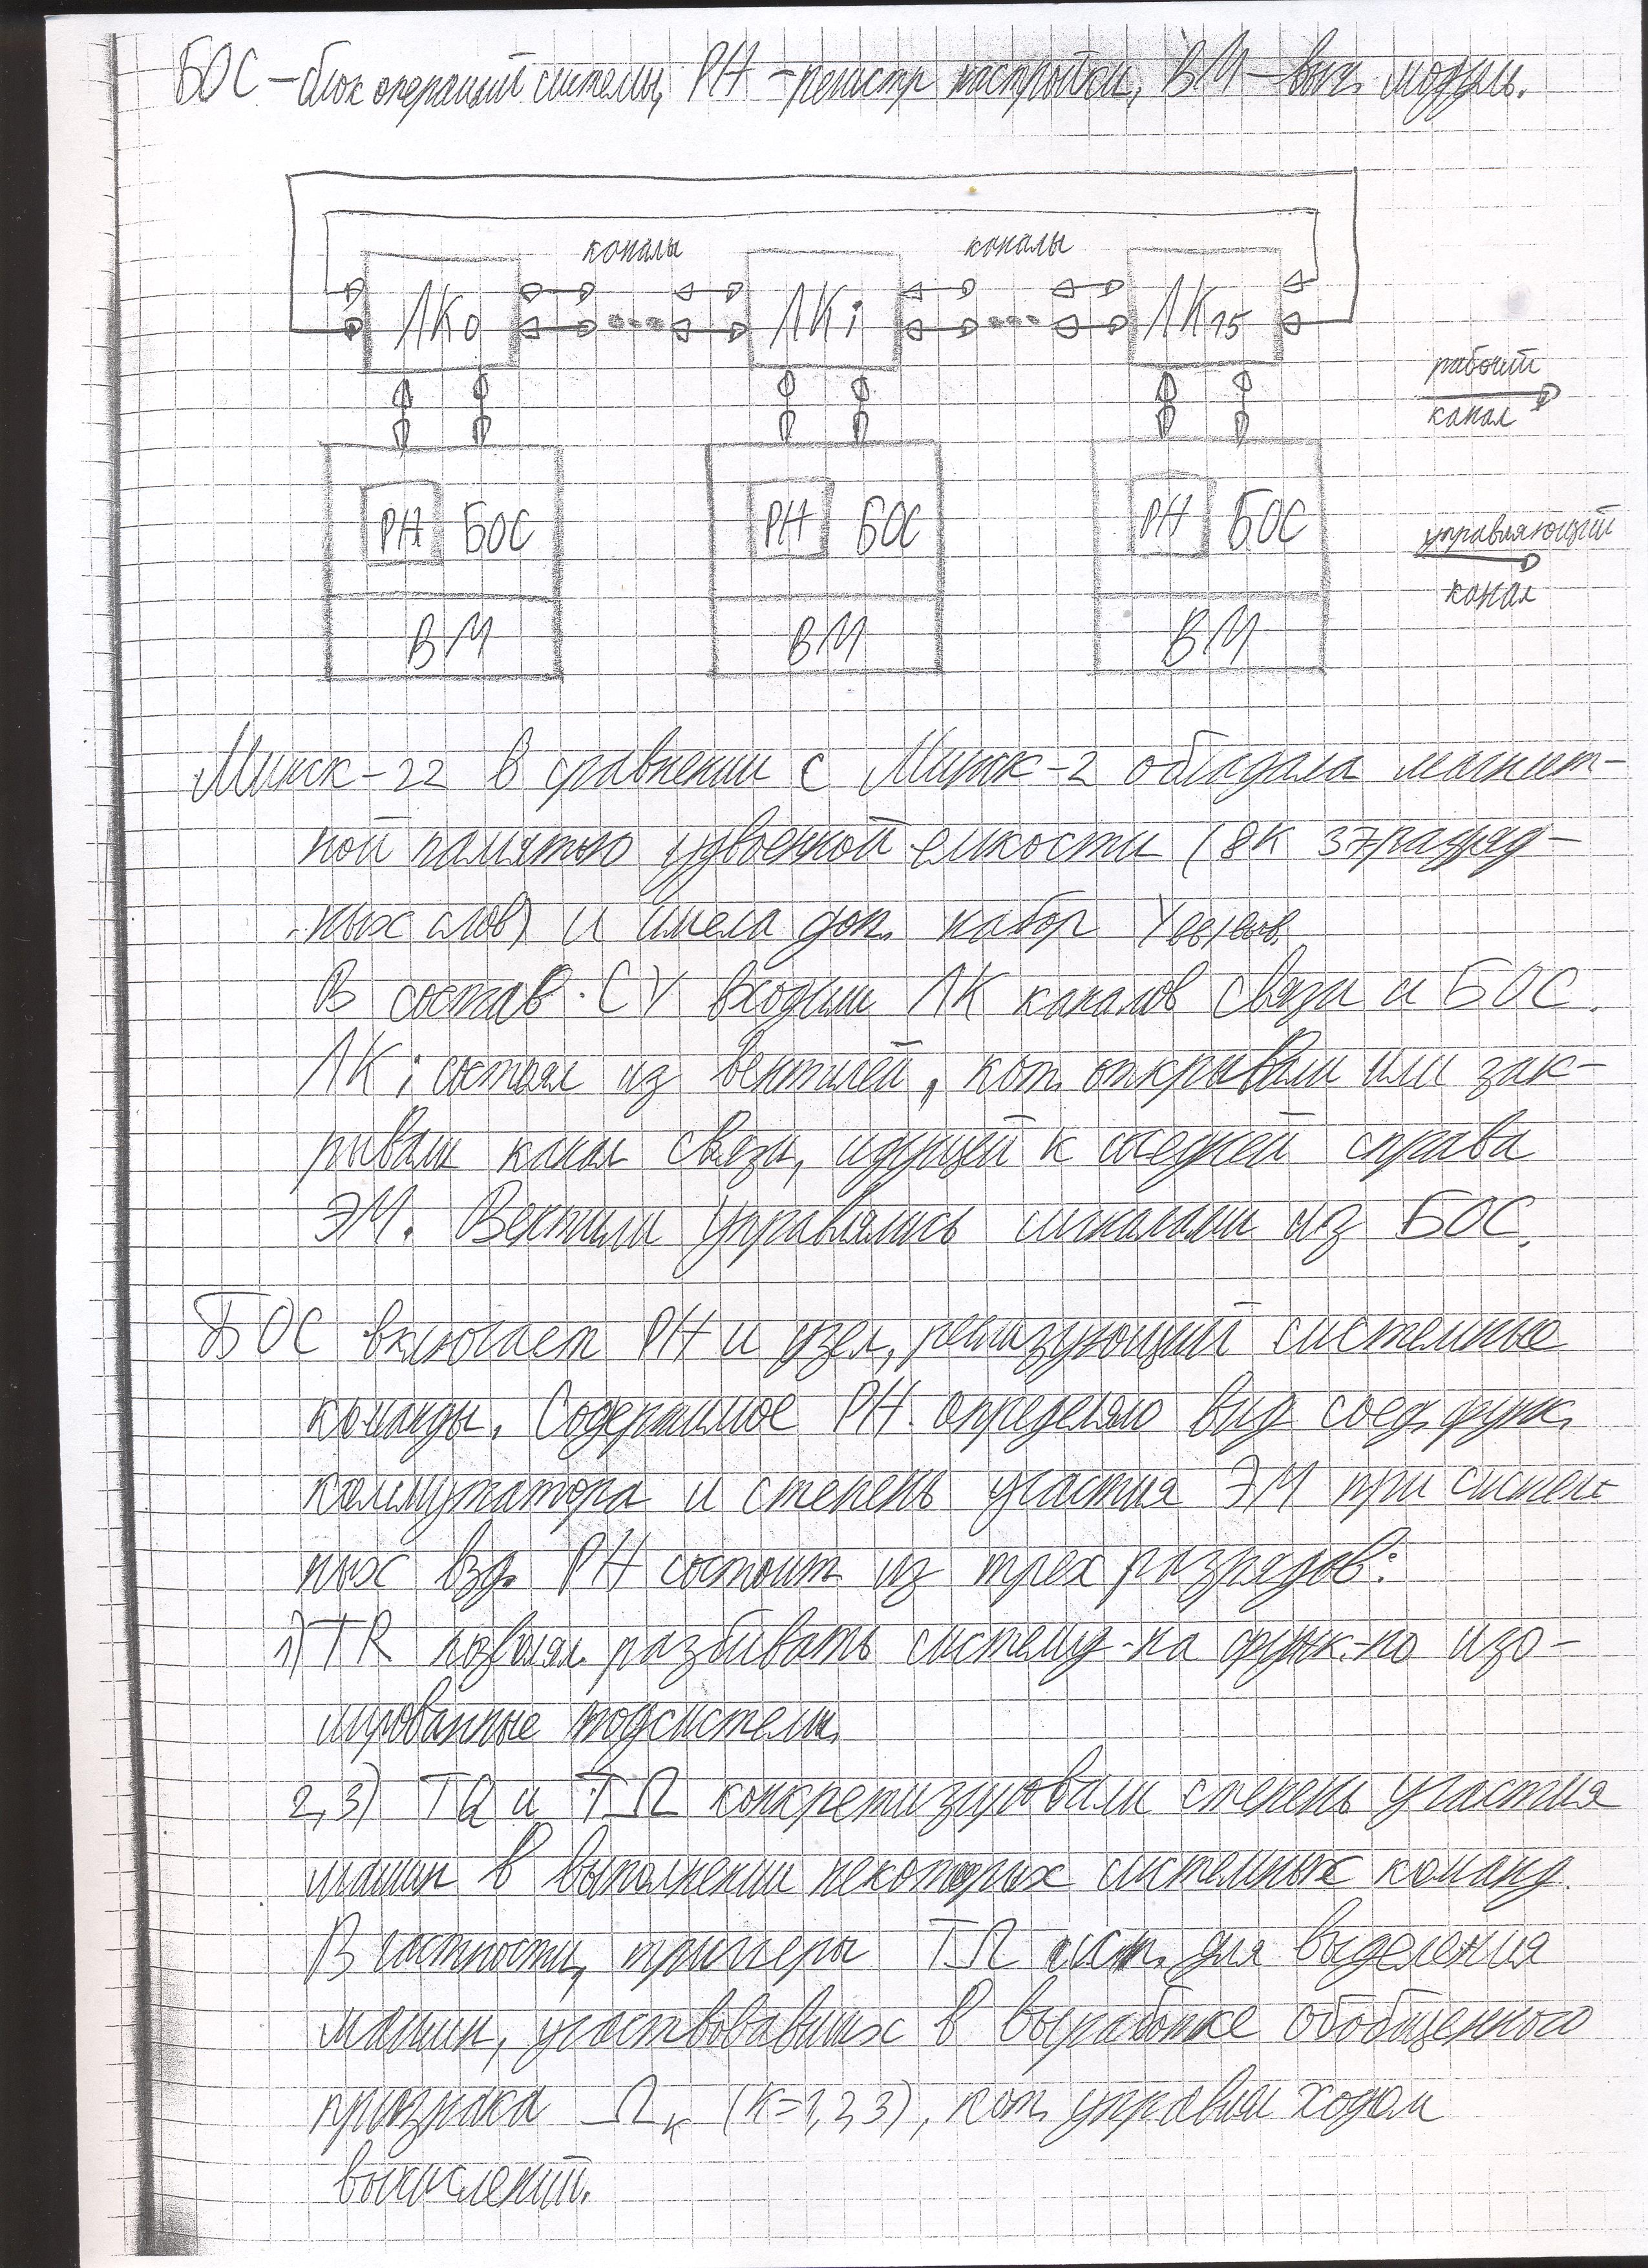 БОС – блок операций системы, РН – регистр настройки, ВМ – выч. модуль.
каналы каналы
ЛК0 ЛКi ЛК15
рабочий
канал
РН БОС РН БОС РН БОС
управляющий
канал
ВМ ВМ ВМ
Минск-22 в сравнении с Минск-2 обладала магнит-
ной памятью удвоенной емкости (8К 37разряд-
ных слов) и имела доп. набор
В состав СУ входили ЛК каналов связи и БОС.
ЛКi состоял из вентилей, кот. открывали или зак-
рывали канал связи, идущей к соседней справа
ЭМ. Вентили управлялись сигналами из БОС.
БОС включает РН и узел, реализующий системные
команды. Содержимое РН определяло вид соед. функ.
коммутатора и степень участия ЭМ при систем-
ных вз.д. РН состоит из трех разрядов:
1) TR позволял разбивать систему на функ-но изо-
лированные подсистемы.
2,3) TQ и TΩ конкретизировали степень участия
машин в выполнении некоторых системных команд.
В частности, триггеры TΩ исп. для выделения
машин, участвовавших в выработке обобщенного
признака Ωк (К=1,2,3), кот. управлял ходом
вычислений.